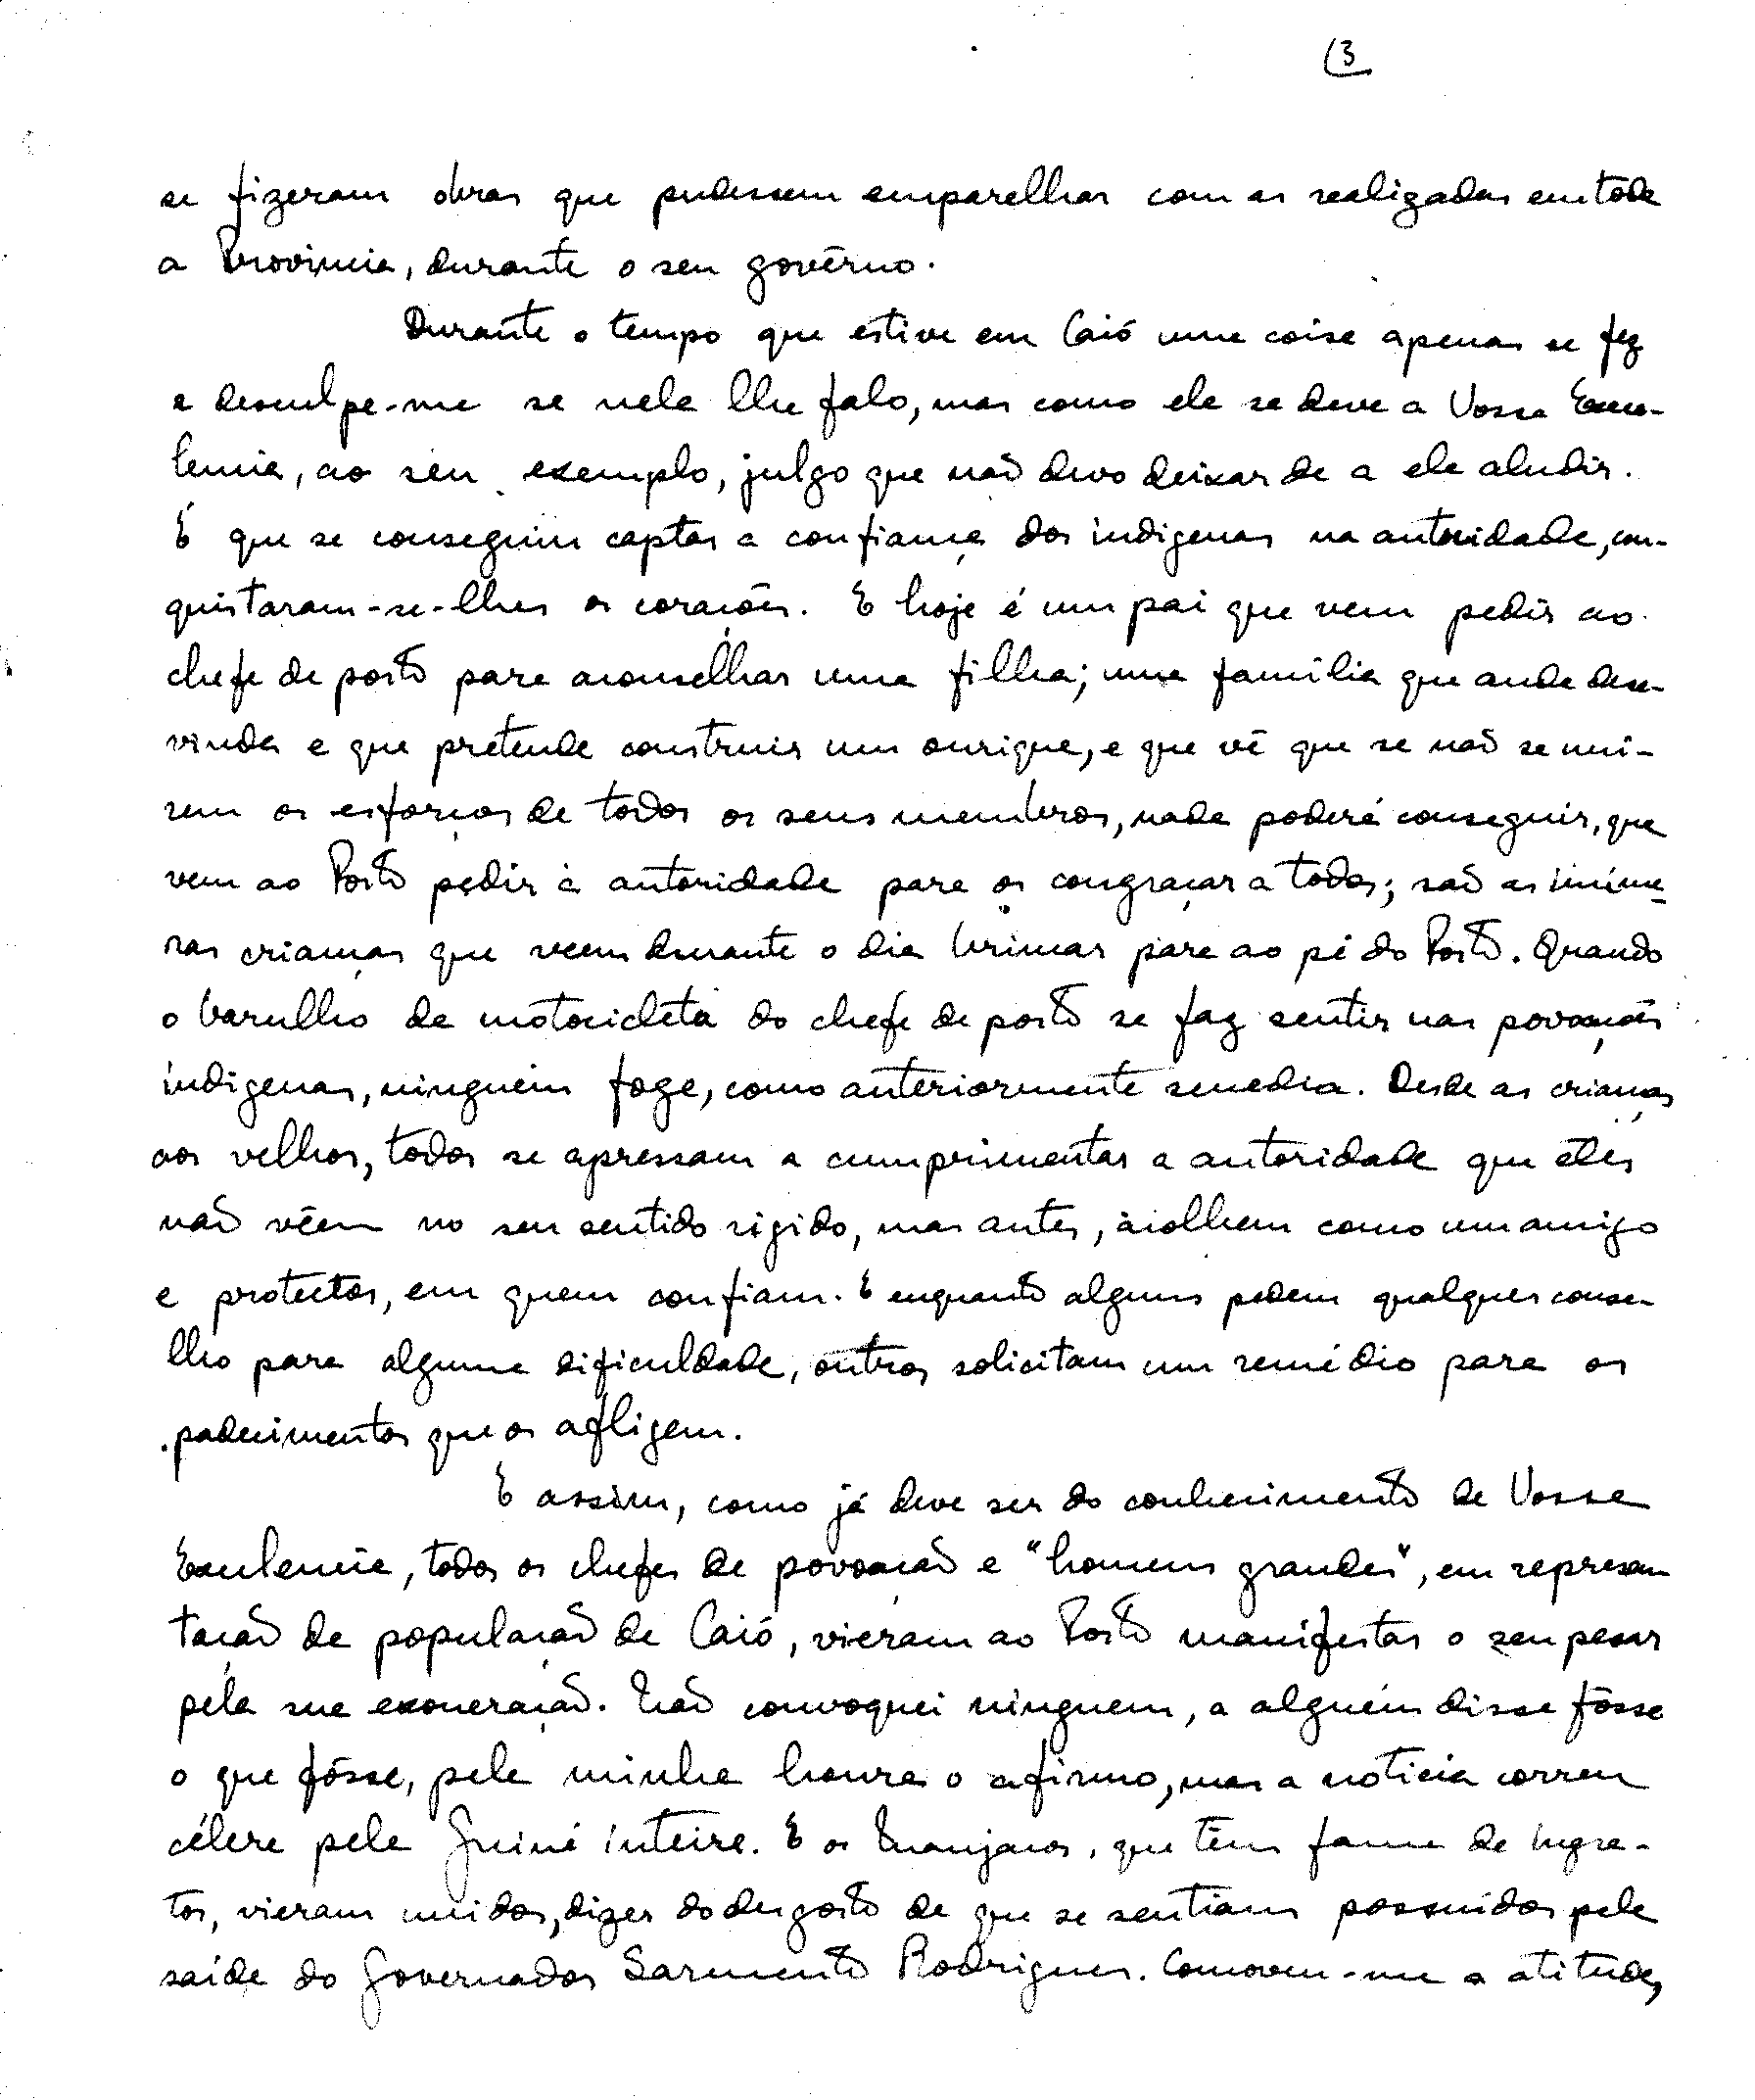 (3
se fizeram obras que pudessem emparelhar com as realizadas em toda
a Província, durante o seu govêrno.
Durante o tempo que estive em Caió uma coisa apenas se fez
e desculpe-me se nela lhe falo, mas como ela se deve a Vossa Exce-
lencia, ao seu exemplo, julgo que não devo deixar de a ela aludir.
É que se conseguiu captar a confiança dos indigenas na autoridade, con-
quistaram-se-lhes os corações. E hoje é um pai que vem pedir ao
chefe de posto para aconselhar uma filha; uma família que anda desa-
vinda e que pretende construir um ourique, e que vê que se não se uni-
rem os esforços de todos os seus membros, nada poderá conseguir, que
vem ao Posto pedir à autoridade para os congraçar a todos; são as inúme-
ras crianças que veem durante o dia brincar para ao pé do Posto. Quando
o barulho da motocicleta do chefe de posto se faz sentir nas povoações
indigenas, ninguém foge, como anteriormente sucedia. Desde as crianças
aos velhos, todos se apressam a cumprimentar a autoridade que êles
não vêem no seu sentido rigido, mas antes, a olham como um amigo
e protector, em quem confiam. E enquanto alguns pedem qualquer conse-
lho para alguma dificuldade, outros solicitam um remédio para os
padecimentos que os afligem.
E assim, como já deve ser do conhecimento de Vossa
Excelencia, todos os chefes de povoação e "homens grandes", em represen
tação da população de Caió, vieram ao Posto manifestar o seu pesar
pela sua exoneração. Não convoquei ninguem, a alguém disse fôsse
o que fôsse, pela minha honra o afirmo, mas a noticia correu
célere pela Guiné inteira. E os Manjacos, que têm fama de ingra-
tos, vieram unidos, dizer do desgosto de que se sentiam possuídos pela
saída do Governador Sarmento Rodrigues. Comoveu-me a atitude,